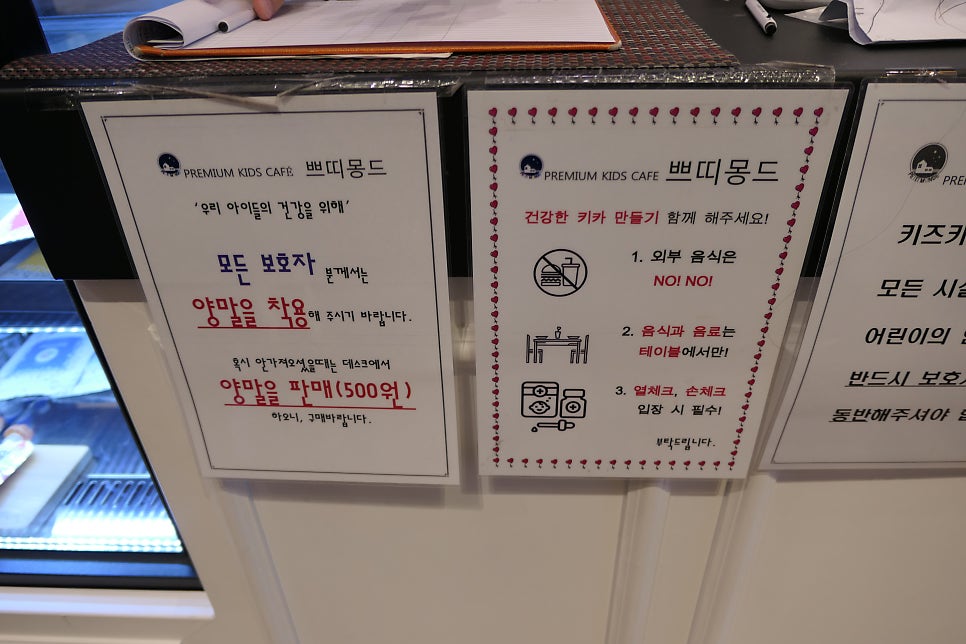 PREMIUM KIDS CAFÉ 쁘띠몽드
'우리 아이들의 건강을 위해'
모든 보호자 분께서는
양말을 착용해 주시기 바랍니다.
혹시 안가져오셨을때는 데스크에서
양말을 판매(500원)
하오니, 구매바랍니다.
PREMIUM KIDS CAFE 쁘띠몽드
건강한 키카 만들기 함께 해주세요!
1. 외부 음식은
NO! NO!
2. 음식과 음료는
테이블에서만!
3. 열체크, 손체크
입장 시 필수!
부탁드립니다.
키즈키
모든 시설
어린이의
반드시 보호
동반해주셔야